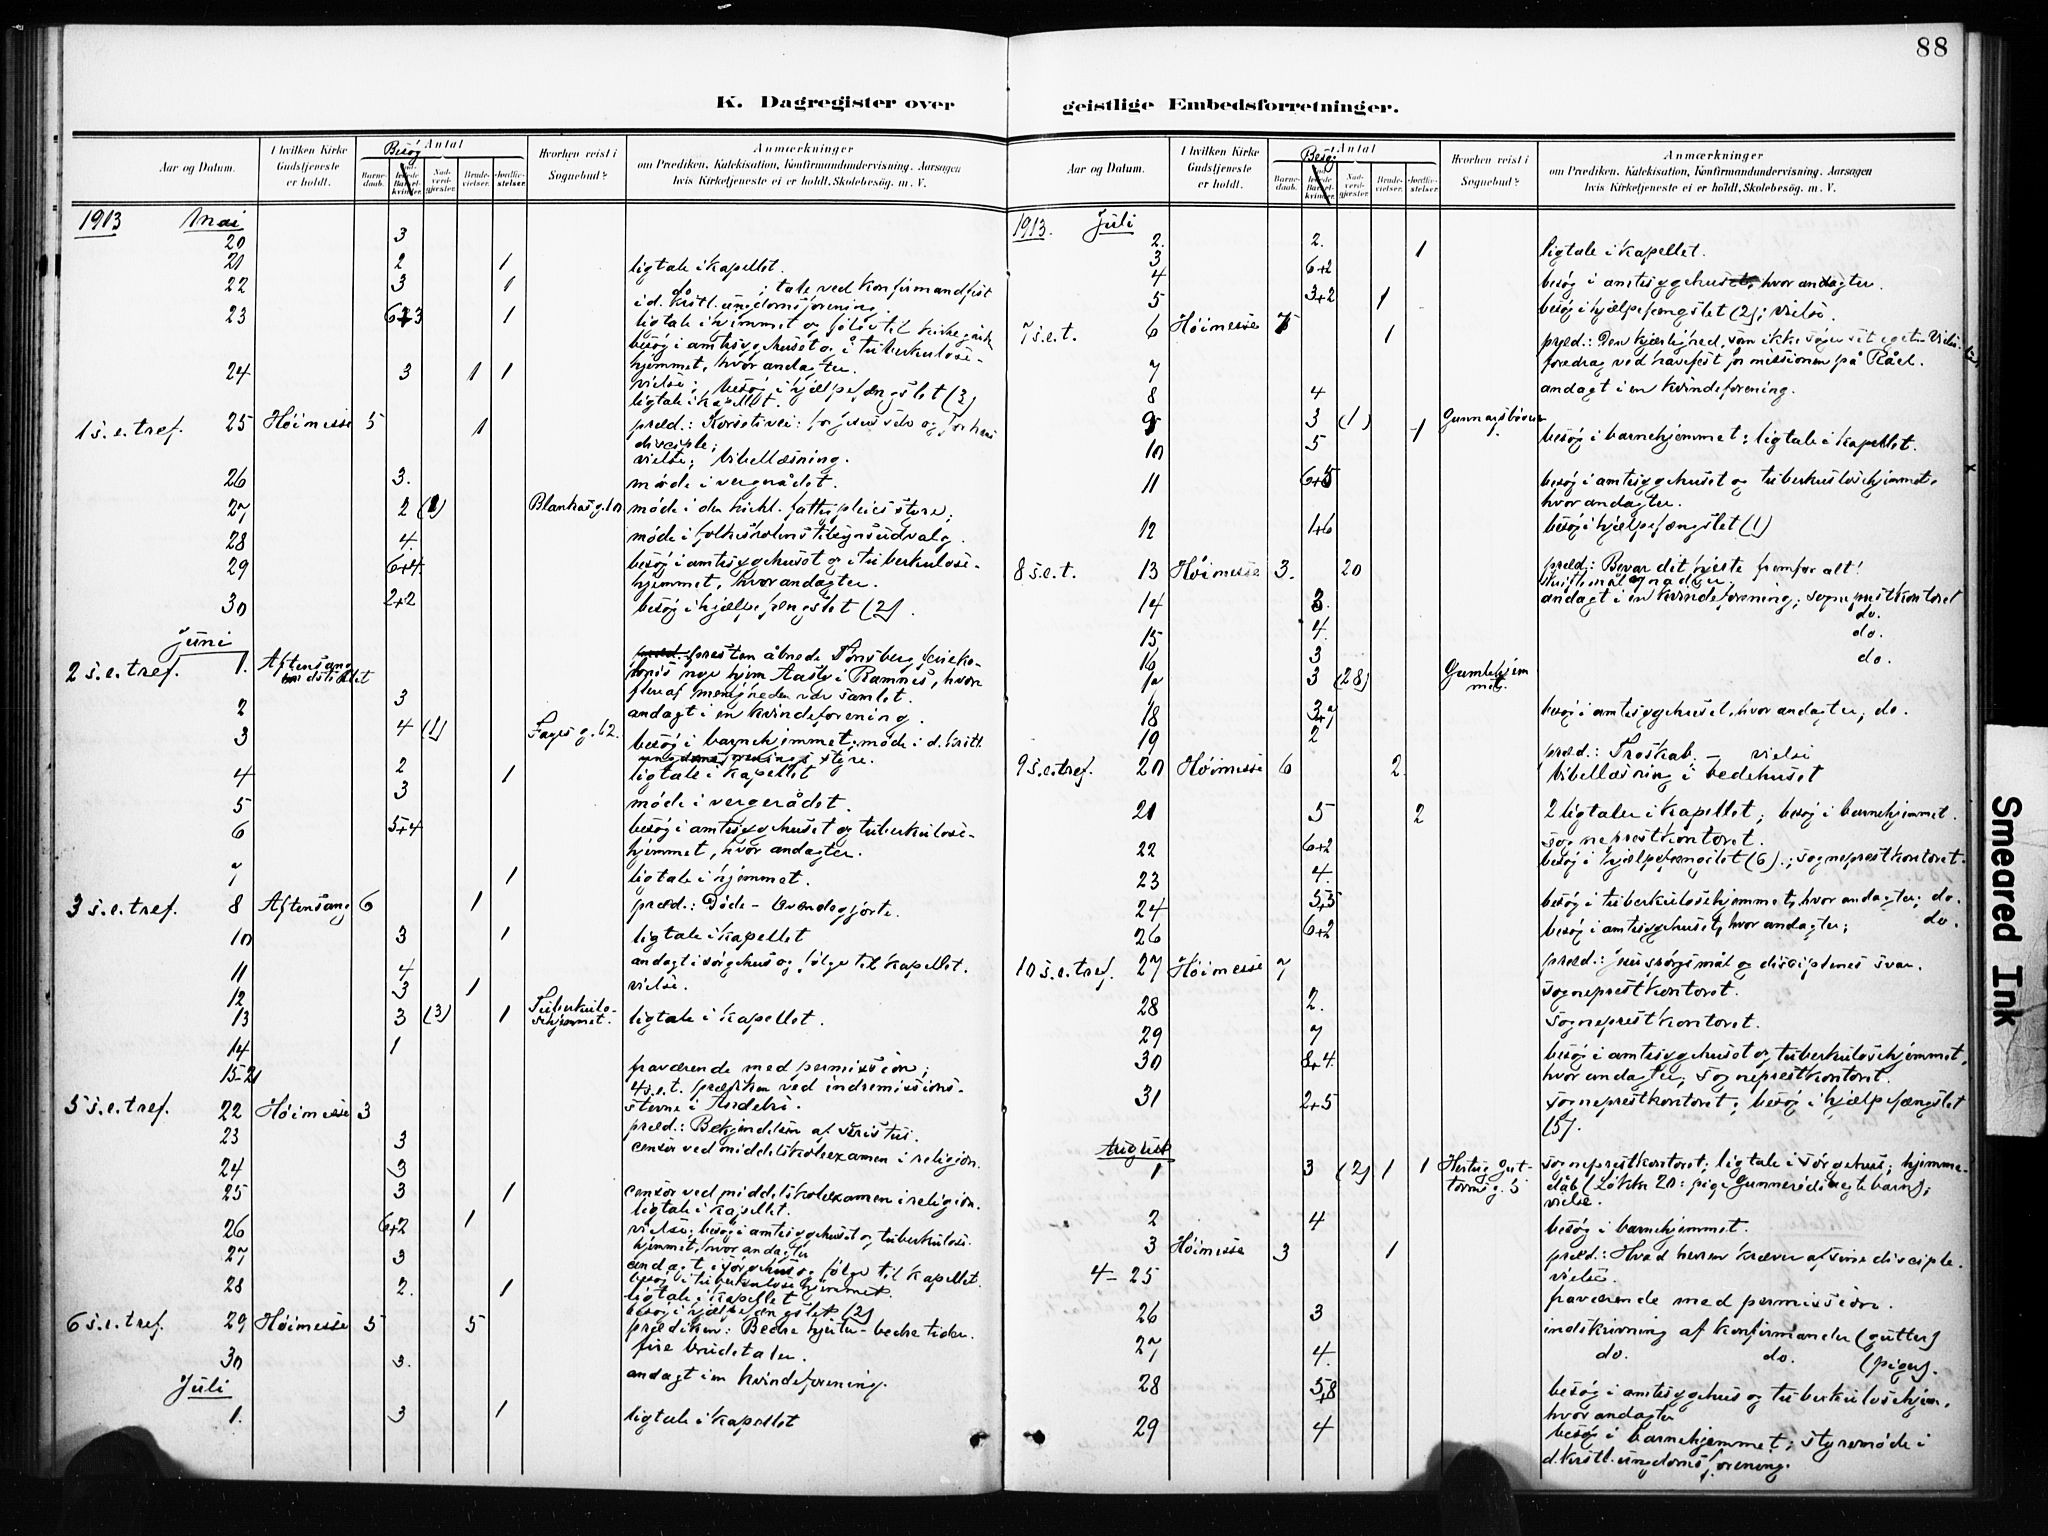 88
K. Dagregister over
geistlige Embedsforretninger.
Aar og Datum.
I hvilken Kirke Gudstjeneste er holdt.
Besøg
Antal
Barnedaab.
Nadverdgjester.
Brudevielser.
Jordfæstelser.
Hvorhen reist i Sognebud?
Anmærkninger
om Prædiken, Katekisation, Konfirmandundervisning. Aarsagen
hvis Kirketjeneste ei er holdt. Skolebesøg. m. V.
1913 Mai
20 3
21 2 1 ligtale i kapellet.
22 3 1 do ; tale ved konfirmandfest
i d. kristl. ungdomsforening.
23 6+3 1 ligtale i hjemmet og følge til kirkegård
besøg i amtssygehuset og i tuberkulose-
hjemmet, hvor andagter.
24 3 1 1 vielse; besøg i hjælpefængslet (3)
ligtale i kapellet.
1 s.e.tref. 25 Høimesse 5 1 præd.: Korsets vei: for Jesus selv og for hans
disciple;
vielse; bibellæsning.
26 3. møde i vergerådet.
27 2 (1) møde i den kirkl. fattigpleies styre;
28 4. møde i folkeskolens tilsynsudvalg.
29 6+4 besøg i amtssygehuset og i tuberkulose-
hjemmet, hvor andagter.
30 2+2 besøg i hjælpefængslet (2).
Juni
2 s.e.tref. 1. Aftensang
presten åbnede Tønsberg ferieko-
lonis nye hjem i Ramnes, hvor
fler af menigheden var samlet.
2 3 andagt i en kvindeforening.
3 4 (1) besøg i barnehjemmet; møde i d. kristl.
ungdomsforenings styre.
4 2 1 ligtale i kapellet
5 3 møde i vergerådet.
6 5+4 besøg i amtssygehuset og tuberkulose-
hjemmet, hvor andagter.
7 1 ligtale i hjemmet.
3 s.e.tref. 8 Aftensang 6 1 præd.: Døde - levendegjorte.
10 3 1 ligtale i kapellet
11 4 andagt i sørgehus og følge til kapellet.
12 3 1 vielse.
13 3 (3) 1 Tuberkulo-
sehjemmet. ligtale i kapellet.
14 1
15-21 fraværende med permission;
4 s.e.t. prædiken ved indremissions-
stevne i Andebu.
5 s.e.tref. 22 Høimesse 3 præd.: Bekjendelsen af Kristus.
23 3 censor ved middelskoleexamen i religion.
24 3
25 3 1 censor ved middelskoleexamen i religion.
ligtale i kapellet.
26 6+2 1 vielse; besøg i amtssygehuset og tuberkulose-
hjemmet, hvor andagter
27 3 andagt i sørgehus og følge til kapellet.
besøg i tuberkulosehjemmet.
28 2. 1 ligtale i kapellet
besøg i hjælpefængslet (2)
6 s.e.tref. 29 Høimesse 5 5 prædiken: Bedre hjerter - bedre tider.
fire brudetaler.
30 3. andagt i en kvindeforening.
Juli
1. 3 1 ligtale i kapellet
Aar og Datum.
I hvilken Kirke Gudstjeneste er holdt.
Besøg
Antal
Barnedaab.
Nadverdgjester.
Brudevielser.
Jordfæstelser.
Hvorhen reist i Sognebud?
Anmærkninger
om Prædiken, Katekisation, Konfirmandundervisning. Aarsagen
hvis Kirketjeneste ei er holdt. Skolebesøg. m. V.
1913. Juli
2. 2. 1 ligtale i kapellet.
3
4 6+2 besøg i amtssygehuset, hvor andagter.
5 3+2 1 besøg i hjælpefængslet (2); vielse.
7 s.e.t. 6 Høimesse 1 præd.: Den kjærlighed, som ikke søger sit eget.
foredrag ved havefest for missionen på Råel.
7
8 4 andagt i en kvindeforening.
9 3 (1)
10 5 1 besøg i barnehjemmet; ligtale i kapellet.
11 6+5 besøg i amtssygehuset og tuberkulosehjemmet,
hvor andagter.
12 1+6 besøg i hjælpefængslet (1)
8 s.e.t. 13 Høimesse 3. 20 præd.: Bevar dit hjerte fremfor alt!
14 3. andagt i en kvindeforening; sogneprestkontoret
15 4. do.
16 3 do.
17 3 (28) Gamlehjem
met. do.
18 3+7 besøg i amtssygehuset, hvor andagter; do.
19 2
9 s.e.tref. 20 Høimesse 6 2. præd.: Troskab. - vielse
bibellæsning i bedehuset
21 5 2 2 ligtaler i kapellet; besøg i barnehjemmet.
sogneprestkontoret.
22 6+2 besøg i hjælpefængslet (6).; sogneprestkontoret.
23 4.
24 5+5 besøg i tuberkulosehjemmet, hvor andagter; do.
26 6+2 besøg i amtssygehuset, hvor andagter; do.
10 s.e.tref. 27 Høimesse 7 præd.: Jesu spørgsmål og disciplenes svar.
28 2. sogneprestkontoret.
29 7 sogneprestkontoret.
30 8+4. besøg i amtssygehuset og tuberkulosehjemmet,
hvor andagter; sogneprestkontoret.
31 2+5 sogneprestkontoret; besøg i hjælpefængslet
(5).
August
1 3 (2) 1 1 Hertug Gut-
tormsg. 5 sogneprestkontoret; ligtale i sørgehus; hjemme-
dåb
vielse.
2 4 besøg i barnehjemmet.
3 Høimesse 3 1 præd.: Hvad herren kræver af sine disciple.
vielse.
4-25 fraværende med permission.
26 3 indskrivning af konfirmander (gutter)
27 4. do. do. (piger).
28 5+8 besøg i amtssygehus og tuberkulosehjem,
hvor andagter
29 4 besøg i barnehjemmet; styremøde i
d. kristl. ungdomsforening.
Smeared Ink